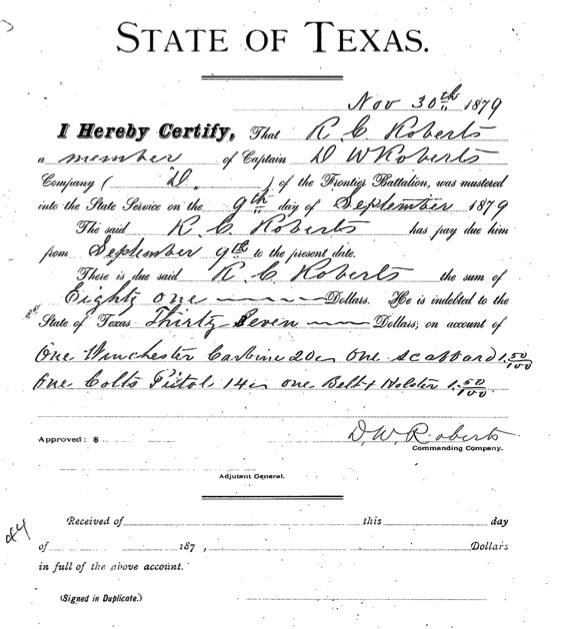 STATE OF TEXAS.
Nov 30th 1879
I Hereby Certify, That R. C. Roberts
a member of Captain D W Roberts
Company ( D. ) of the Frontier Battalion, was mustered
into the State Service on the 9th day of September 1879
The said R. C. Roberts has pay due him
from September 9th to the present date.
There is due said R. C. Roberts the sum of
Eighty one Dollars. He is indebted to the
State of Texas Thirty Seven Dollars; on account of
One Winchester Carbine 20 One Scabbard 1.50/100
One Colts Pistol 14 one Belt & Holster 1.50/100
Approved: $
D. W. Roberts
Commanding Company.
Adjutant General.
Received of this day
of 187 , Dollars
in full of the above account.
(Signed in Duplicate.)